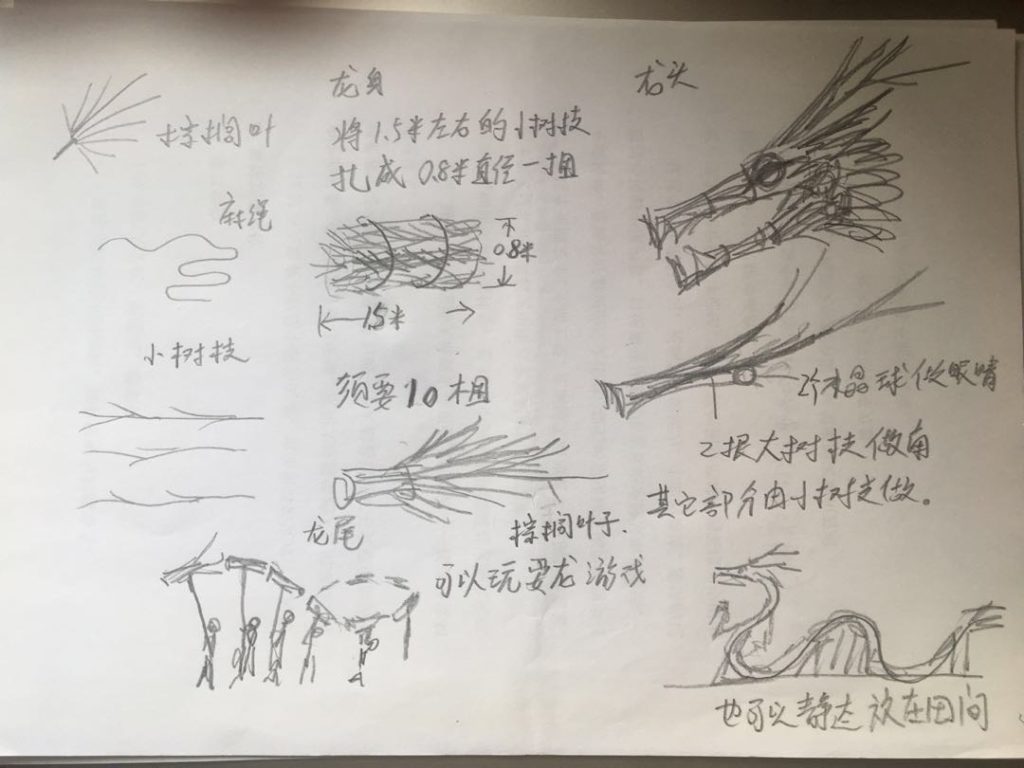 棕榈叶
麻绳
小树技
龙身
将1.5米左右的小树技
扎成0.8米直径一捆
0.8米
1.5米
须要10捆
龙尾
棕榈叶子.
可以玩耍龙游戏
龙头
2个水晶球做眼睛
2根大树技做角
其它部分由小树技做。
也可以静达放在田间